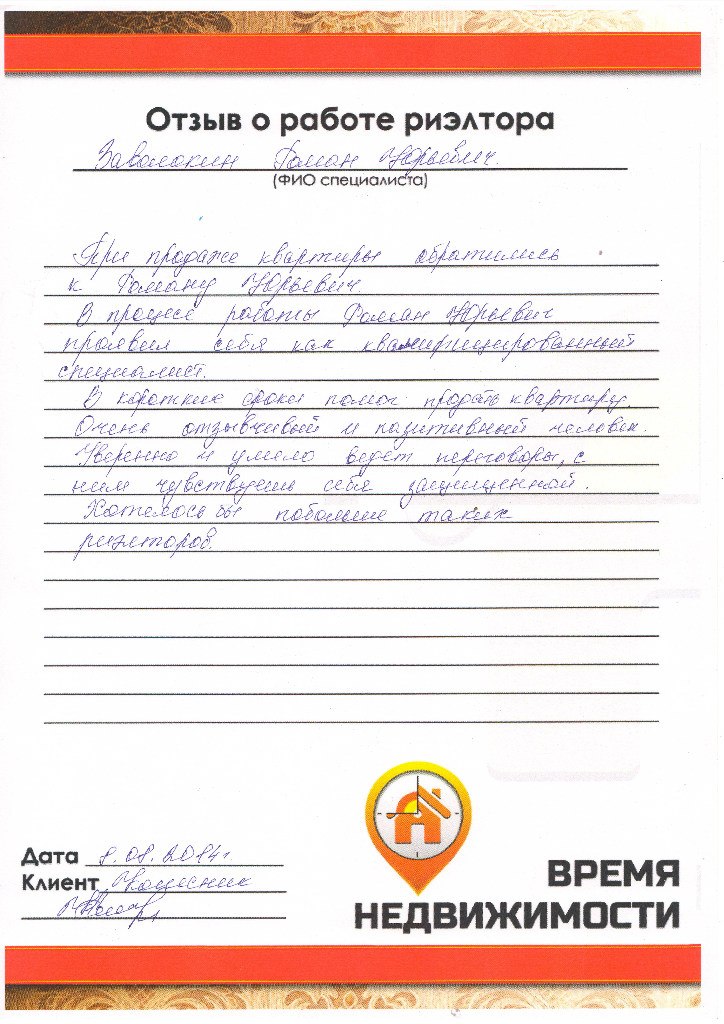 Отзыв о работе риэлтора
Заволокин Роман Юрьевич.
(ФИО специалиста)
При продаже квартиры обратились
к Роману Юрьевич
В процесе работы Роман Юрьевич
проявил себя как квалифицированный
специалист.
В короткие сроки помог продать квартиру.
Очень отзывчивый и позитивный человек.
Уверенно и умело ведет переговоры, с
ним чувствуешь себя защищенной.
Хотелось бы побольше таких
риэлторов.
Дата 8.08.2014г
Клиент
ВРЕМЯ
НЕДВИЖИМОСТИ